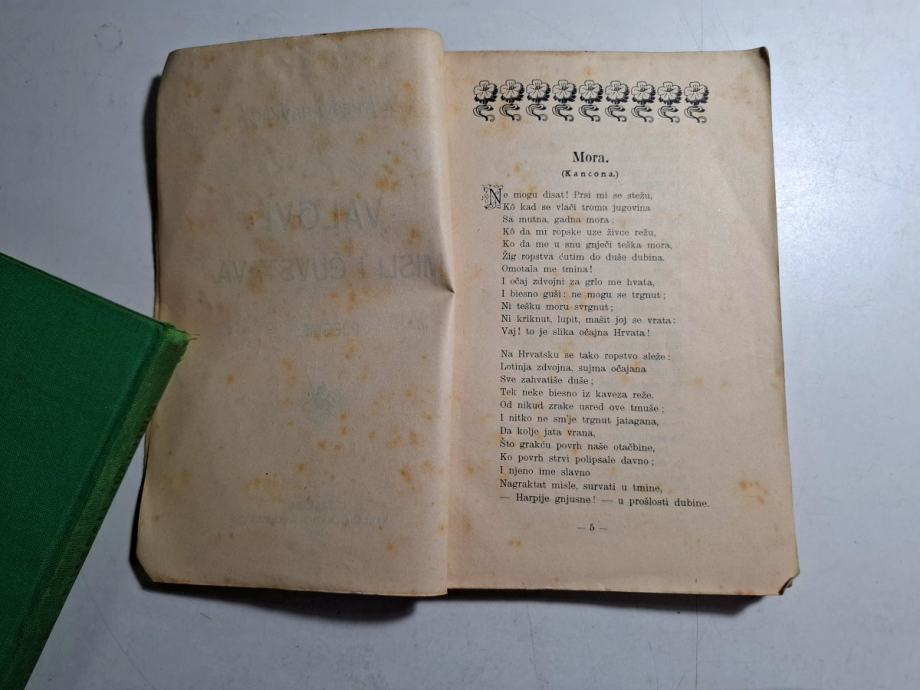 VALOVI
MISLI I ČUVSTVA
Mora.
(Kancona.)
Ne mogu disat! Prsi mi se stežu,
Kô kad se vlači troma jugovina
Sa mutna, gadna mora;
Kô da mi ropske uze živce režu,
Ko da me u snu gnječi teška mora,
Žig ropstva ćutim do duše dubina.
Omotala me tmina!
I očaj zdvojni za grlo me hvata,
I biesno guši: ne mogu se trgnut;
Ni tešku moru svrgnut;
Ni kriknut, lupit, mašit joj se vrata:
Vaj! to je slika očajna Hrvata!
Na Hrvatsku se tako ropstvo sleže:
Lotinja zdvojna, sujma očajana
Sve zahvatiše duše;
Tek neke biesno iz kaveza reže.
Od nikud zrake usred ove tmuše;
I nitko ne smje trgnut jatagana,
Da kolje jata vrana,
Što grakću povrh naše otačbine,
Ko povrh strvi polipsale davno;
I njeno ime slavno
Nagraktat misle, survati u tmine,
— Harpije gnjusne! — u prošlosti dubine.
— 5 —